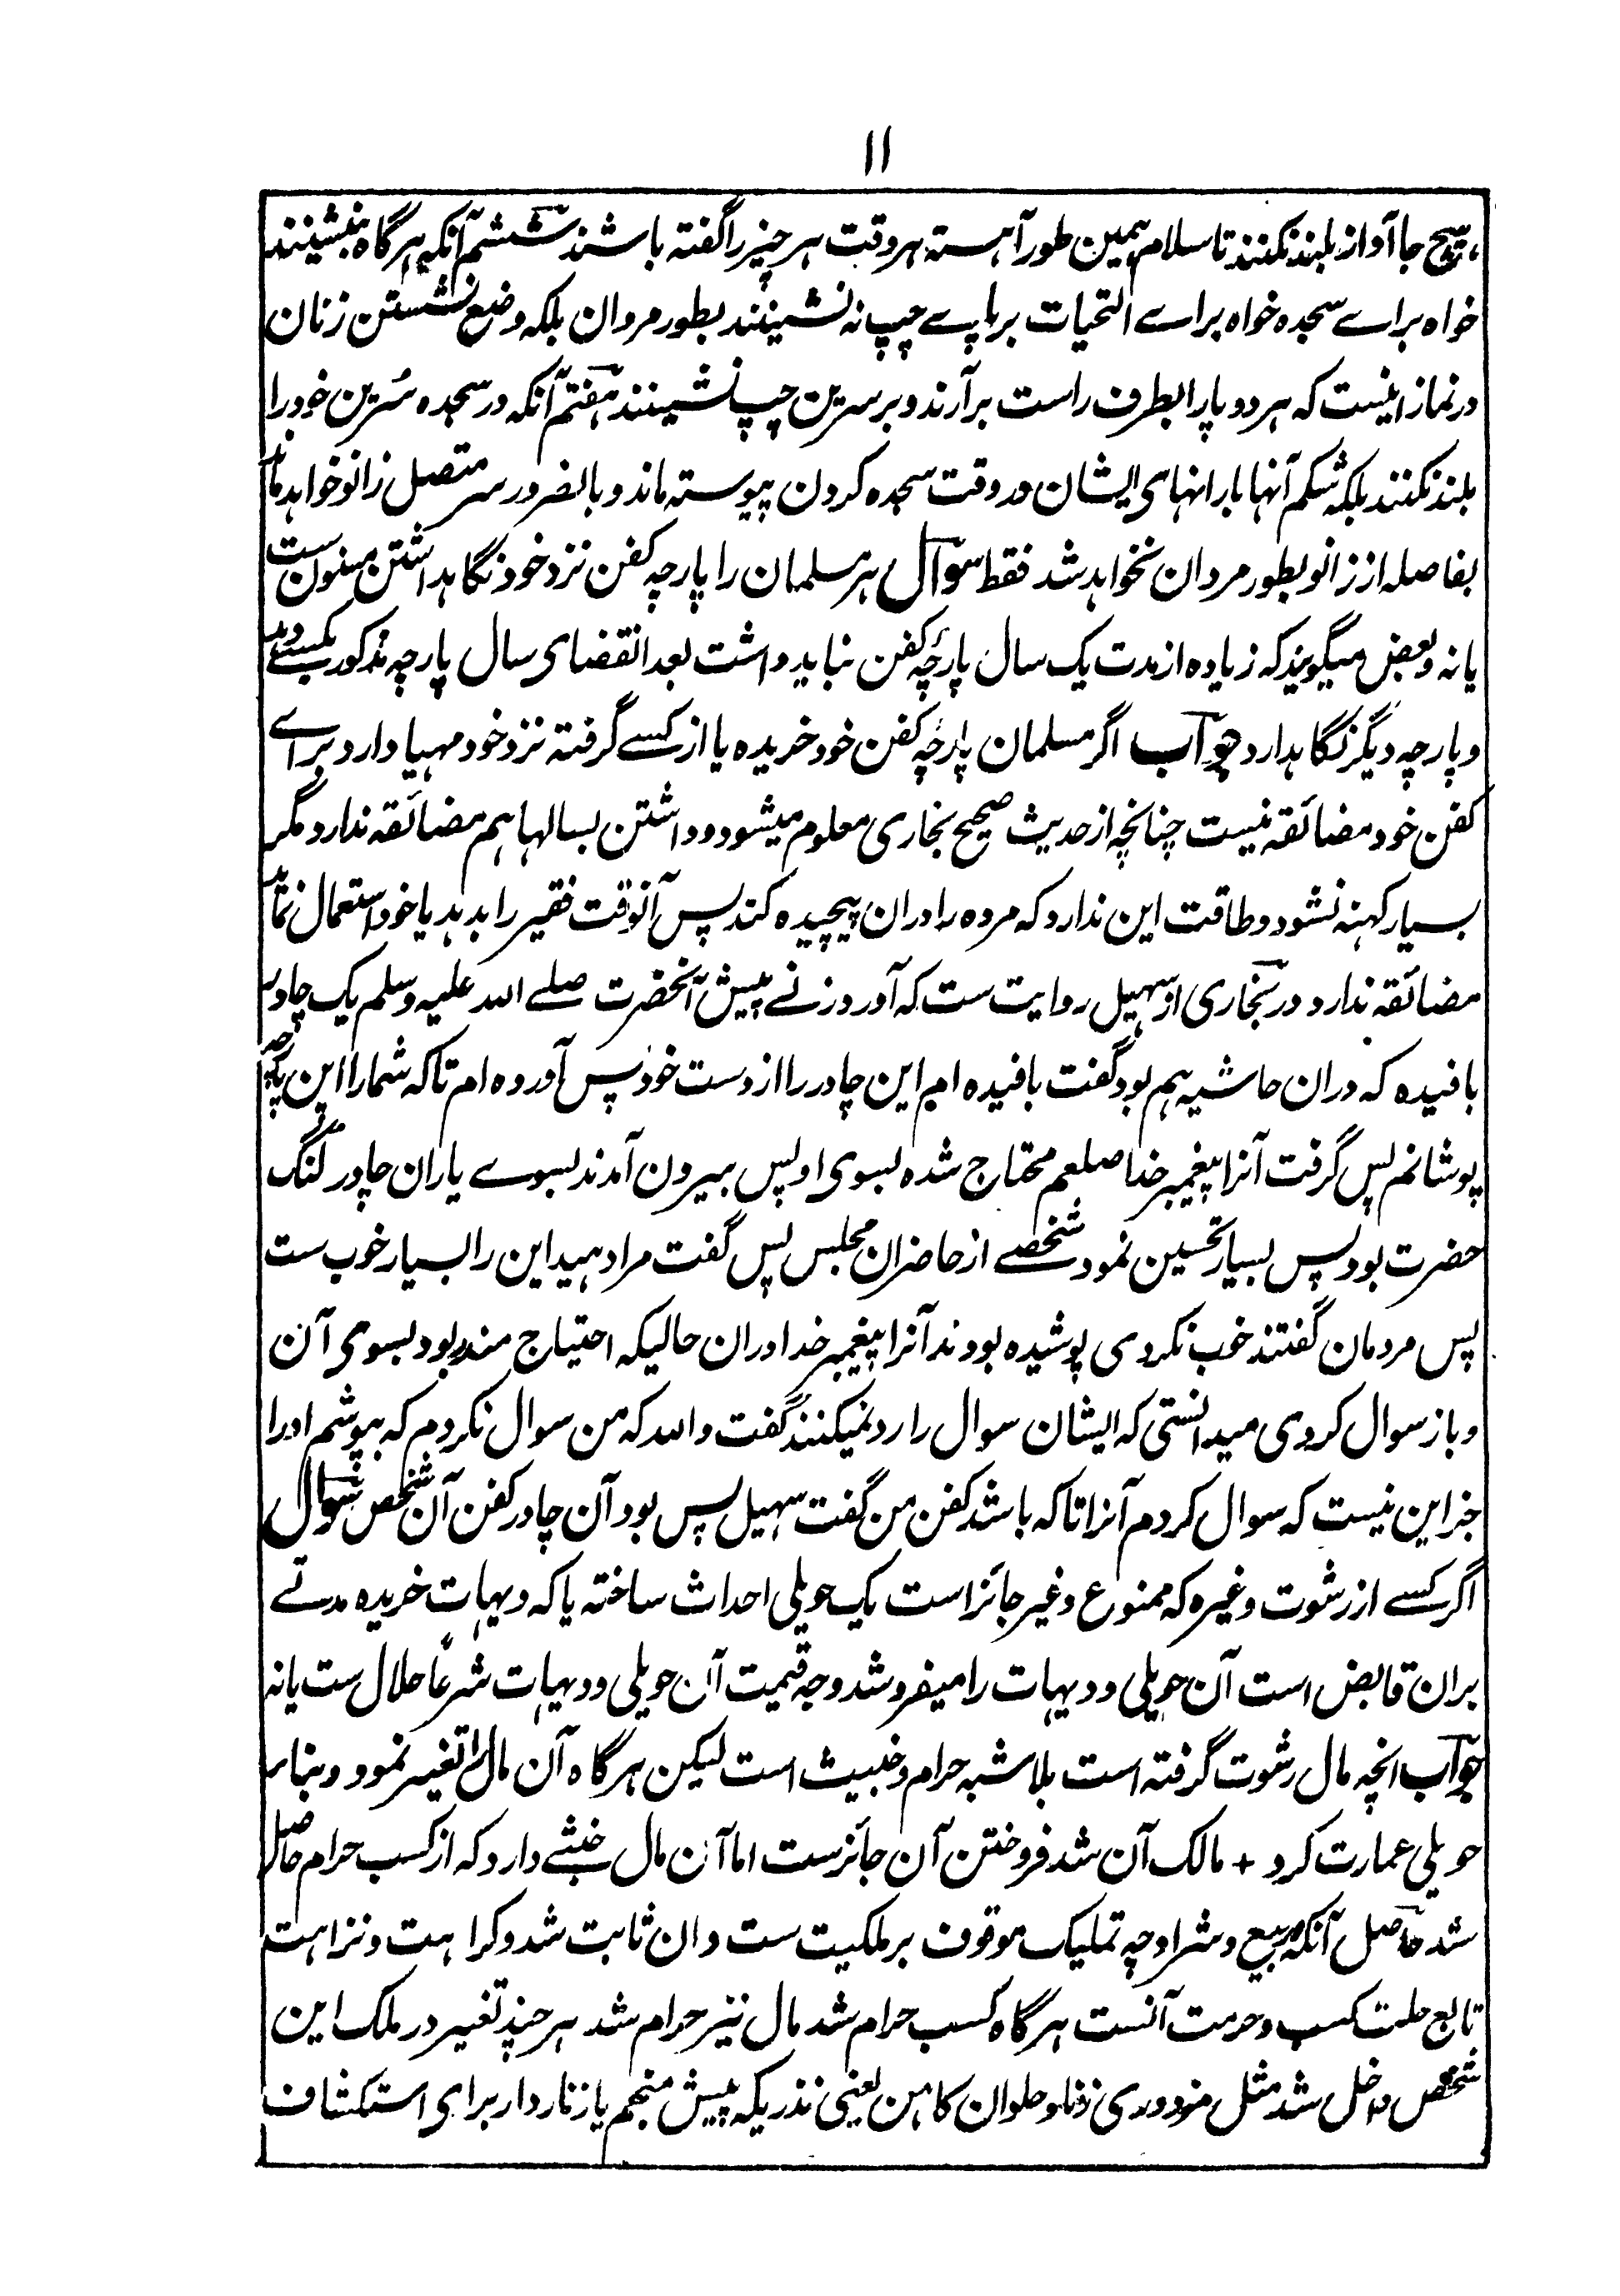 ۱۱
ہیچ جا آواز بلند نکنند تا سلام ہمین طور آہستہ ہر وقت ہر چیز را گفتہ باشند ششم آنکہ ہر گاہ بنشینند
خواہ براے سجدہ خواہ براے التحیات بر پاے چپ نہ نشینند بطور مردان بلکہ وضع نشستن زنان
در نماز اینست کہ ہر دو پا را بطرف راست بر آرند و بر سرین چپ نشینند ہفتم آنکہ در سجدہ سُرین خود را
بلند نکنند بلکہ شکم آنہا با رانہای ایشان در وقت سجدہ کردن پیوستہ ماند و بالضرور سر متصل زانو خواہد ماند
بفاصلہ از زانو بطور مردان نخواہد شد فقط سوال ہر مسلمان را پارچہ کفن نزد خود نگاہداشتن مسنون ست
یا نہ و بعض میگویند کہ زیادہ از مدت یک سال پارچہ کفن نباید داشت بعد انقضای سال پارچہ مذکور بکسے دہد
و پارچہ دیگر نگاہدارد جواب اگر مسلمان پارچہ کفن خود خریدہ یا از کسے گرفتہ نزد خود مہیا دارد براے
کفن خود مضائقہ نیست چنانچہ از حدیث صحیح بخاری معلوم میشود و داشتن بسالہا ہم مضائقہ ندارد مگر
بسیار کہنہ نشود و طاقت این ندارد کہ مردہ را دران پیچیدہ کنند پس آنوقت فقیر را بدہد یا خود استعمال نماید
مضائقہ ندارد در بخاری از سہیل روایت ست کہ آورد زنے پیش آنحضرت صلے اللہ علیہ وسلم یک چادر
بافیدہ کہ دران حاشیہ ہم بود گفت بافیدہ ام این چادر را از دست خود پس آوردہ ام تا کہ شما را این پارچہ
پوشانم پس گرفت آنرا پیغمبر خدا صلعم محتاج شدہ بسوی او پس بیرون آمدند بسوے یاران چادر لنگ
حضرت بود پس بسیار تحسین نمود شخصے از حاضران مجلس پس گفت مرا دہید این را بسیار خوب ست
پس مردمان گفتند خوب نکردی پوشیدہ بودند آنرا پیغمبر خدا دران حالیکہ احتیاج مند بود بسوی آن
و باز سوال کردی میدانستی کہ ایشان سوال را رد نمیکنند گفت واللہ کہ من سوال نکردم کہ بپوشم او را
جز این نیست کہ سوال کردم آنرا تا کہ باشد کفن من گفت سہیل پس بود آن چادر کفن آن شخص سوال
اگر کسے از رشوت وغیرہ کہ ممنوع و غیر جائز است یک حویلی احداث ساختہ یا کہ دیہات خریدہ مدتے
بران قابض است آن حویلی و دیہات را میفروشد وجہ قیمت آن حویلی و دیہات شرعاً حلال ست یا نہ
جواب انچہ مال رشوت گرفتہ است بلا شبہ حرام و خبیث است لیکن ہر گاہ آن مال را تغیر نمود و بناء
حویلی عمارت کرد + مالک آن شد فروختن آن جائز ست اما آن مال خبثے دارد کہ از کسب حرام حاصل
شد حاصل آنکہ بیع و شرا و چہ تملیک موقوف بر ملکیت ست و ان ثابت شد و کراہت و نزاہت
تابع حلت کسب و حرمت آنست ہر گاہ کسب حرام شد مال نیز حرام شد ہر چند تغیر در ملک این
شخص داخل شد مثل مزدوری زنا و حلوان کاہن یعنی نذریکہ پیش منجم یا زناردار برای استکشاف